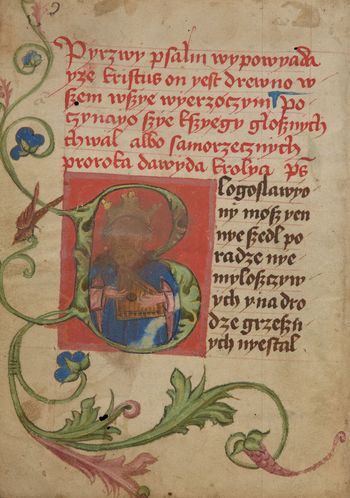 Pyrzwy psalm wypowyada
yze kristus on yest drewno w
szem wszye wyerzoczym Po
czynayo szye kszyegy glosznych
chwal albo samorzecznych
proroka dawyda krolya ps
Blogoslawyo
ny mosz yen
nye szedl po
radze nye
myloszczyw
ych y na dro
dze grzeszn
ych nyestal